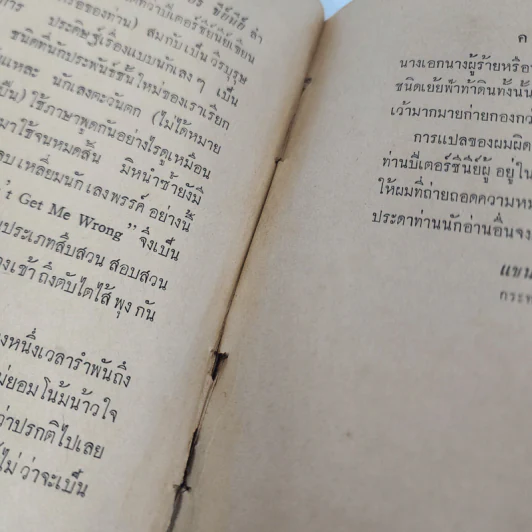 ว่าปีเตอร์ชีนีย์เขียน
ของท่าน) สมกับเป็น วีรบุรุษ
ประดิษฐ์เรื่องแบบนักเลง ๆ เป็น
ชนิดที่นักประพันธ์ชั้นใหม่ของเราเรียก
แหละ นักเลงตะวันตก (ไม่ได้หมาย
ใช้ภาษาพูดกันอย่างไรดูเหมือน
มาใช้จนหมดสิ้น มิหนำซ้ำยังมี
เหลี่ยมนักเลงพรรค์ อย่างนี้
't Get Me Wrong" จึ่งเป็น
ประเภทสืบสวน สอบสวน
เข้า ถึงตับไตไส้ พุง กัน
หนึ่งเวลารำพันถึง
ยอมโน้มน้าวใจ
ว่าปรกติไปเลย
ไม่ ว่าจะเป็น
ค
นางเอกนางผู้ร้ายหรือ
ชนิดเย้ยฟ้าท้าดินทั้งนั้น
เว้ามากมายก่ายกอง
การแปลของผมผิด
ท่านปีเตอร์ชีนีย์ผู้ อยู่ใน
ให้ผมที่ถ่ายถอดความ
ประดาท่านนักอ่านอื่นจง
แขน